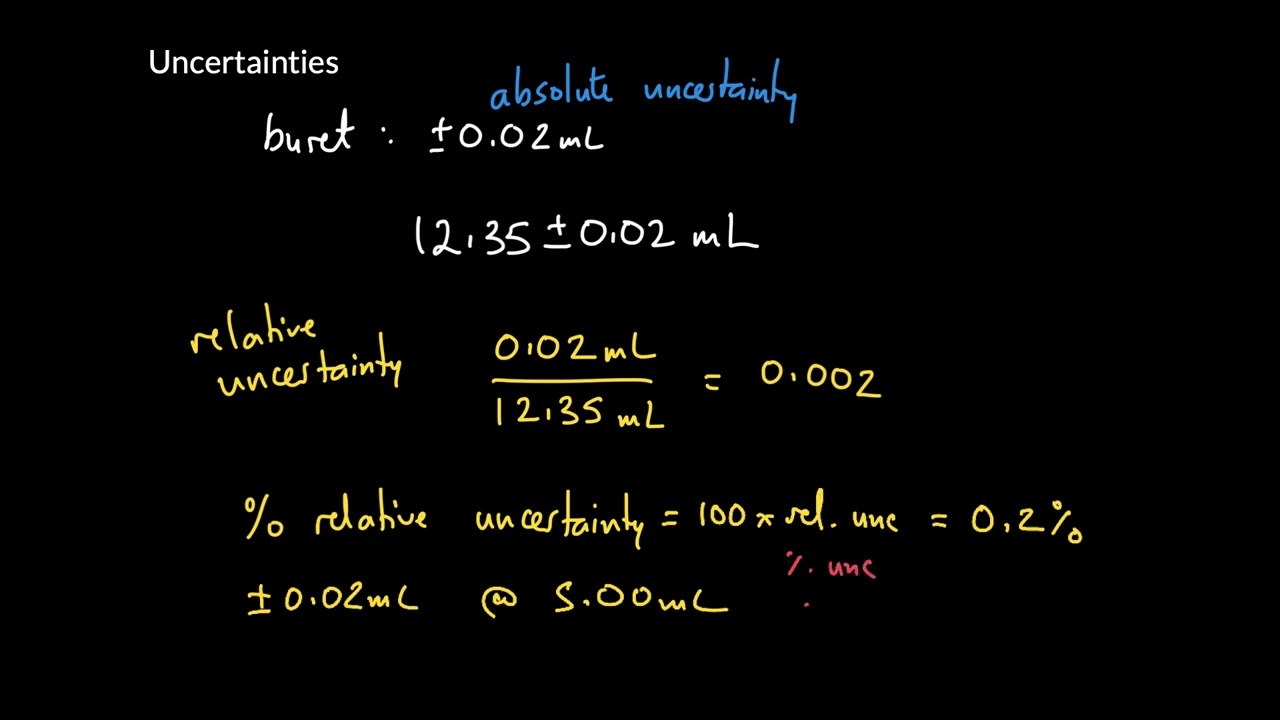 Uncertainties
absolute uncertainty
buret : ±0.02mL
12.35 ± 0.02 mL
relative
uncertainty
0.02mL
12.35 mL
= 0.002
% relative uncertainty = 100 × rel. unc = 0.2%
% unc
±0.02mL @ 5.00mL